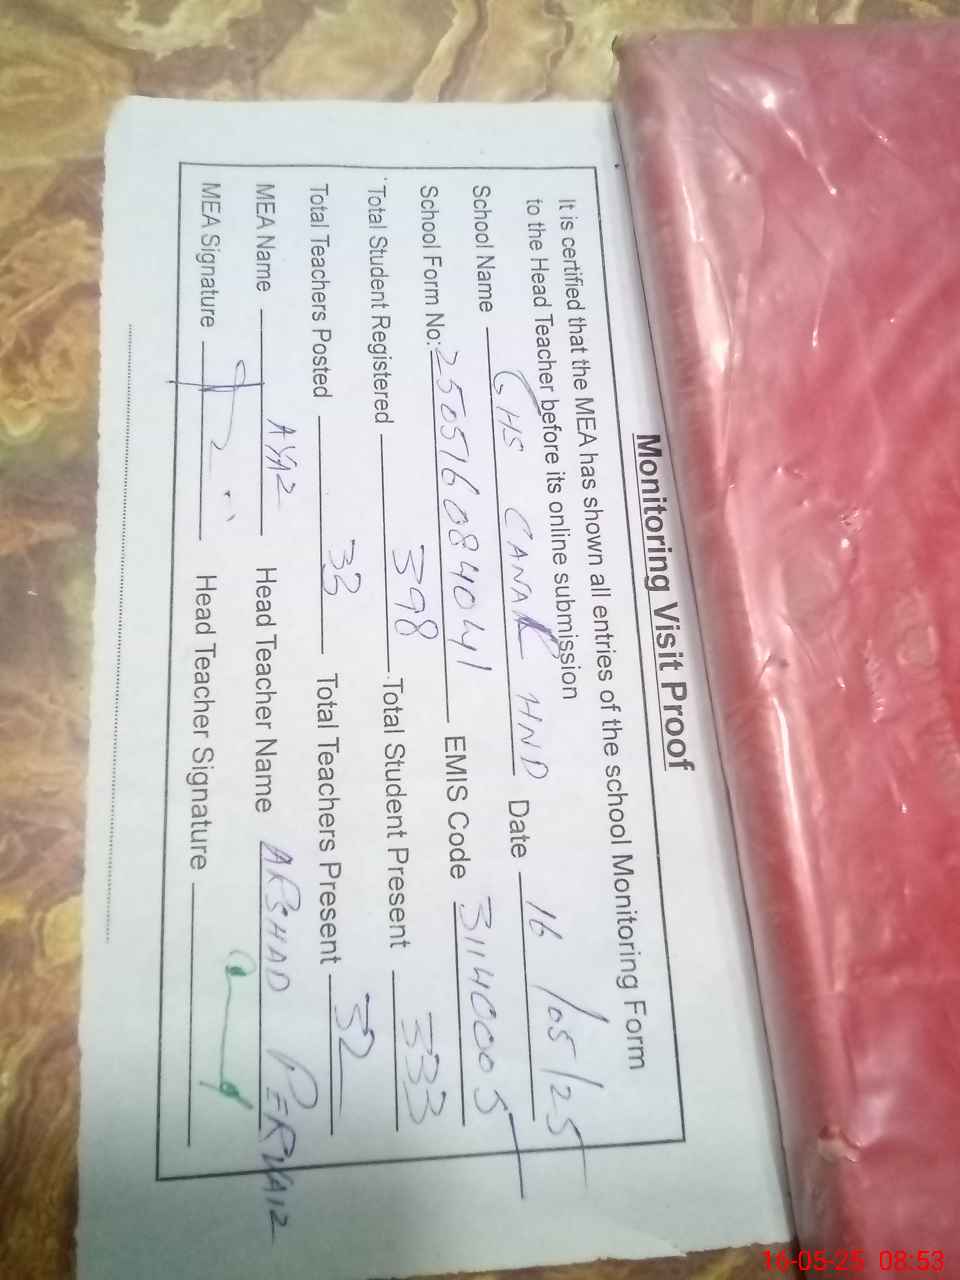 Monitoring Visit Proof
It is certified that the MEA has shown all entries of the school Monitoring Form
to the Head Teacher before its online submission
School Name GHS CANAK HND Date 16/05/25
School Form No: 250516084041 EMIS Code 31140005
Total Student Registered 398 Total Student Present 333
Total Teachers Posted 33 Total Teachers Present 32
MEA Name AYAZ Head Teacher Name ARSHAD PERVAIZ
MEA Signature Head Teacher Signature
16-05-25 08:53